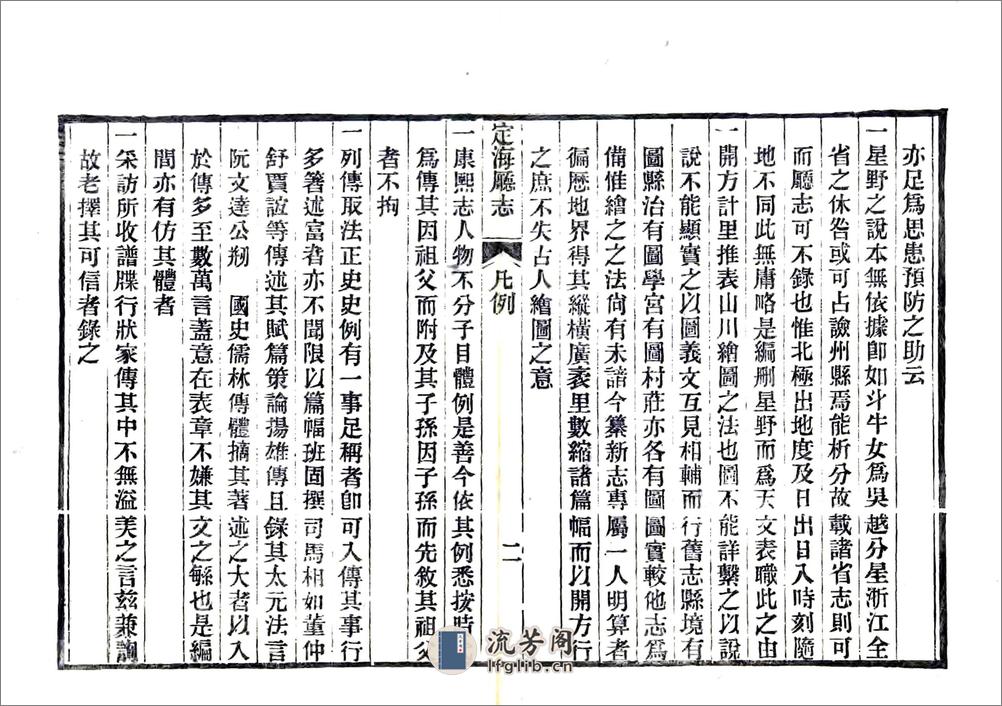 亦足爲思患預防之助云
一星野之說本無依據卽如斗牛女爲吳越分星浙江全
省之休咎或可占譣州縣焉能析分故載諸省志則可
而廳志可不錄也惟北極出地度及日出日入時刻隨
地不同此無庸略是編刪星野而爲天文表職此之由
一開方計里推表山川繪圖之法也圖不能詳繫之以說
說不能顯實之以圖義文互見相輔而行舊志縣境有
圖縣治有圖學宮有圖村莊亦各有圖圖實較他志爲
備惟繪之之法尙有未諳今纂新志專屬一人明算者
徧歷地界得其縱橫廣袤里數縮諸篇幅而以開方行
之庶不失古人繪圖之意
定海廳志
凡例
二
一康熙志人物不分子目體例是善今依其例悉按時代
爲傳其因祖父而附及其子孫因子孫而先敘其祖父
者不拘
一列傳取法正史史例有一事足稱者卽可入傳其事行
多著述富者亦不聞限以篇幅班固撰司馬相如董仲
舒賈誼等傳述其賦篇策論揚雄傳且錄其太元法言
阮文達公剏 國史儒林傳體摘其著述之大者以入
於傳多至數萬言蓋意在表章不嫌其文之緐也是編
間亦有仿其體者
一采訪所收譜牒行狀家傳其中不無溢美之言茲兼詢
故老擇其可信者錄之
流芳阁
lfglib.cn